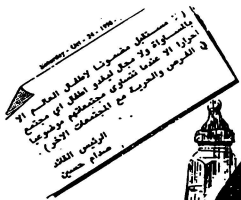 Saturday - Oct - 24 - 1998
(( مستقبل مضمونا لاطفال العالم الا
بالمساواة ولا مجال لبقاء اطفال اي مجتمع
احرارا الا عندما تتساوى مجتمعاتهم موضوعيا
في الفرص والحرية مع المجتمعات الاخرى)
الرئيس القائد
صدام حسين